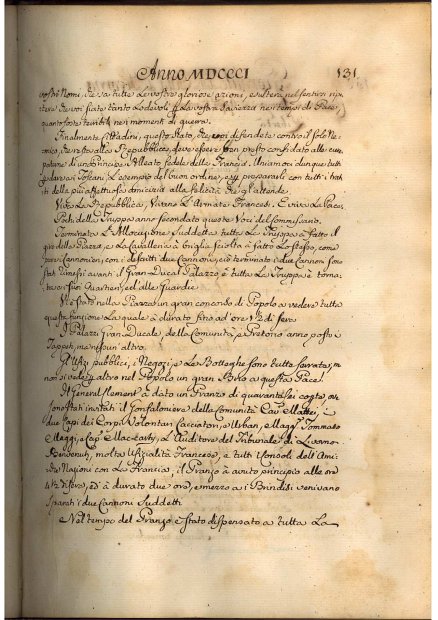 Anno MDCCCI 131.
vostri Nomi, che sa tutte le vostre gloriose azioni, esulterà nel sentir ripe
tere che voi siate tanto Lodevoli per la vostra Saviezza nei tempi di Pace,
quanto foste terribili nei momenti di guerra.
Finalmente Cittadini, questo Stato, che voi difendete contro il solo Ne=
mico, che resta alla Repubblica, deve essere ben presto confidato alle cu=
re paterne di un Principe Alleato fedele della Francia. Uniamoci dunque tutti
per dare ai Toscani l'esempio del buon ordine, e per prepararli con tutti i trat=
ti della più affettuosa amicizia alla felicità che gl'attende.
Viva La Repubblica, Vivano L'Armate Francesi. E viva La Pace.
Pochi della Truppa anno secondato queste Voci del Commissario.
Terminata L'Allocuzione Suddetta tutta La Truppa à fatto il
giro della Piazza, e La Cavalleria à briglia sciolta à fatto Lo stesso, come
pure i Cannonieri, con i descritti due Cannoni, e ciò terminato i due Cannoni sono
stati messi avanti il Gran Ducal Palazzo e tutta La Truppa è torna=
ta ai suoi Quartieri, ed alle Guardie.
Vi è stato nella Piazza un gran concorso di Popolo a vedere tutta
questa funzione La quale à durato fino ad ore 1½ di sera.
I Palazzi Gran Ducale, della Comunità, e Pretorio anno posto i
Tappeti, ma nessun altro.
Gl'Ufizi pubblici, i Negozj, e Le Botteghe sono tutte serrate, ma
non si vede altro nel Popolo un gran Brio a questa Pace.
Il General Clement à dato un Pranzo di quaranta sei coperte ove
sono stati invitati il Gonfaloniere della Comunità Cav. Mattei, i
due Capi dei Corpi Volontari Cacciatori, e Urbani, Magg. Tommaso
Meaggi, e Cap. Mactearty, L'Auditore del Tribunale di Livorno
Benvenuti, molta Ufizialità Francese, e tutti i Consoli dell'Ami=
che Nazioni con La Francia, il Pranzo à avuto principio alle ore
4½ di sera, ed à durato due ore, e mezzo a i Brindisi venivano
sparati i due Cannoni Suddetti.
Nel tempo del Pranzo è stato dispensato a tutta La